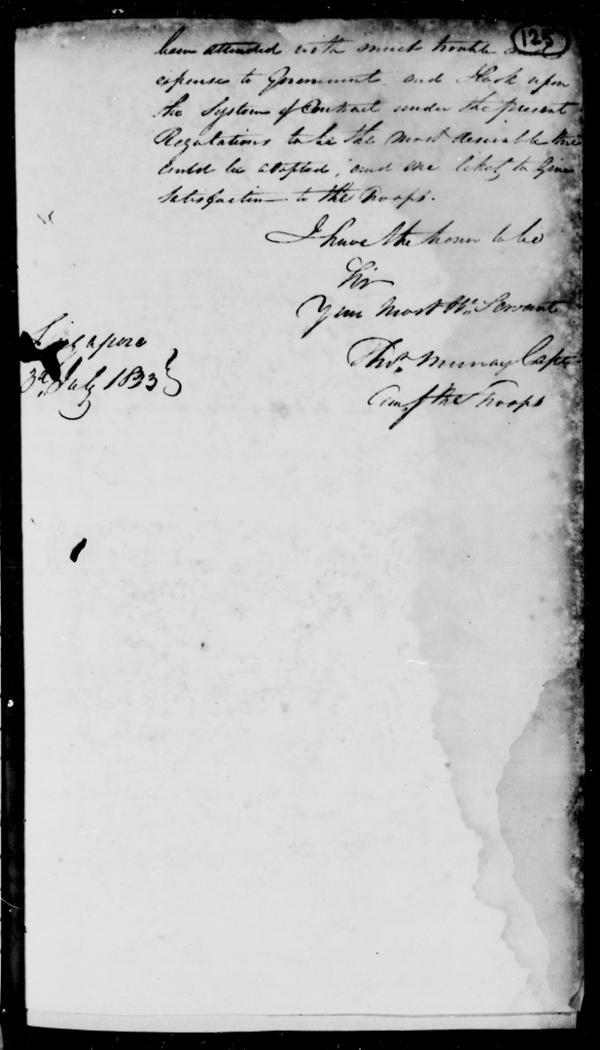 125
been attended with much trouble and
expense to Government. and I look upon
the System of Contract under the present
Regulations to be the most desirable that
could be adopted, and one likely to give
satisfaction to the Troops.
I have the honor to be
Sir
Your Most Ob. Servant
Thos. Murray Capt
Com. of the Troops
Singapore
3d. July 1833